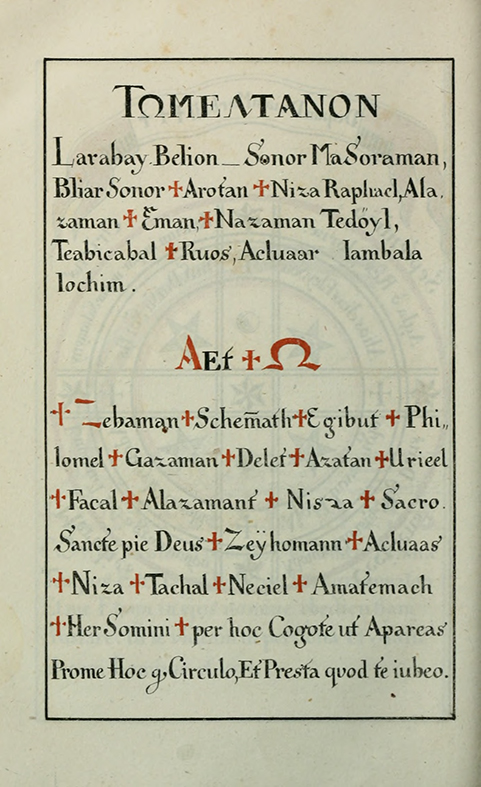 TΩMEΛTANON
Larabay Belion _ Sonor MaSoraman,
Bliar Sonor ✝ Arotan ✝ Niza Raphael, Ala.
zaman ✝ Eman, ✝ Nazaman Tedöyl,
Teabicabal ✝ Ruos, Acluaar Iambala
Iochim.
A Et ✝ Ω
✝ Zebaman ✝ Schem̄ath ✝ Egibut ✝ Phi„
lomel ✝ Gazaman ✝ Delet ✝ Azatan ✝ Urieel
✝ Facal ✝ Alazamant ✝ Nisza ✝ Sacro.
Sancte pie Deus ✝ Zeÿhomann ✝ Acluaas
✝ Niza ✝ Tachal ✝ Neciel ✝ Amatemach
✝ Her Somini ✝ per hoc Cogote ut Apareas
Prome Hoc g, Circulo, Et Presta quod te iubeo.